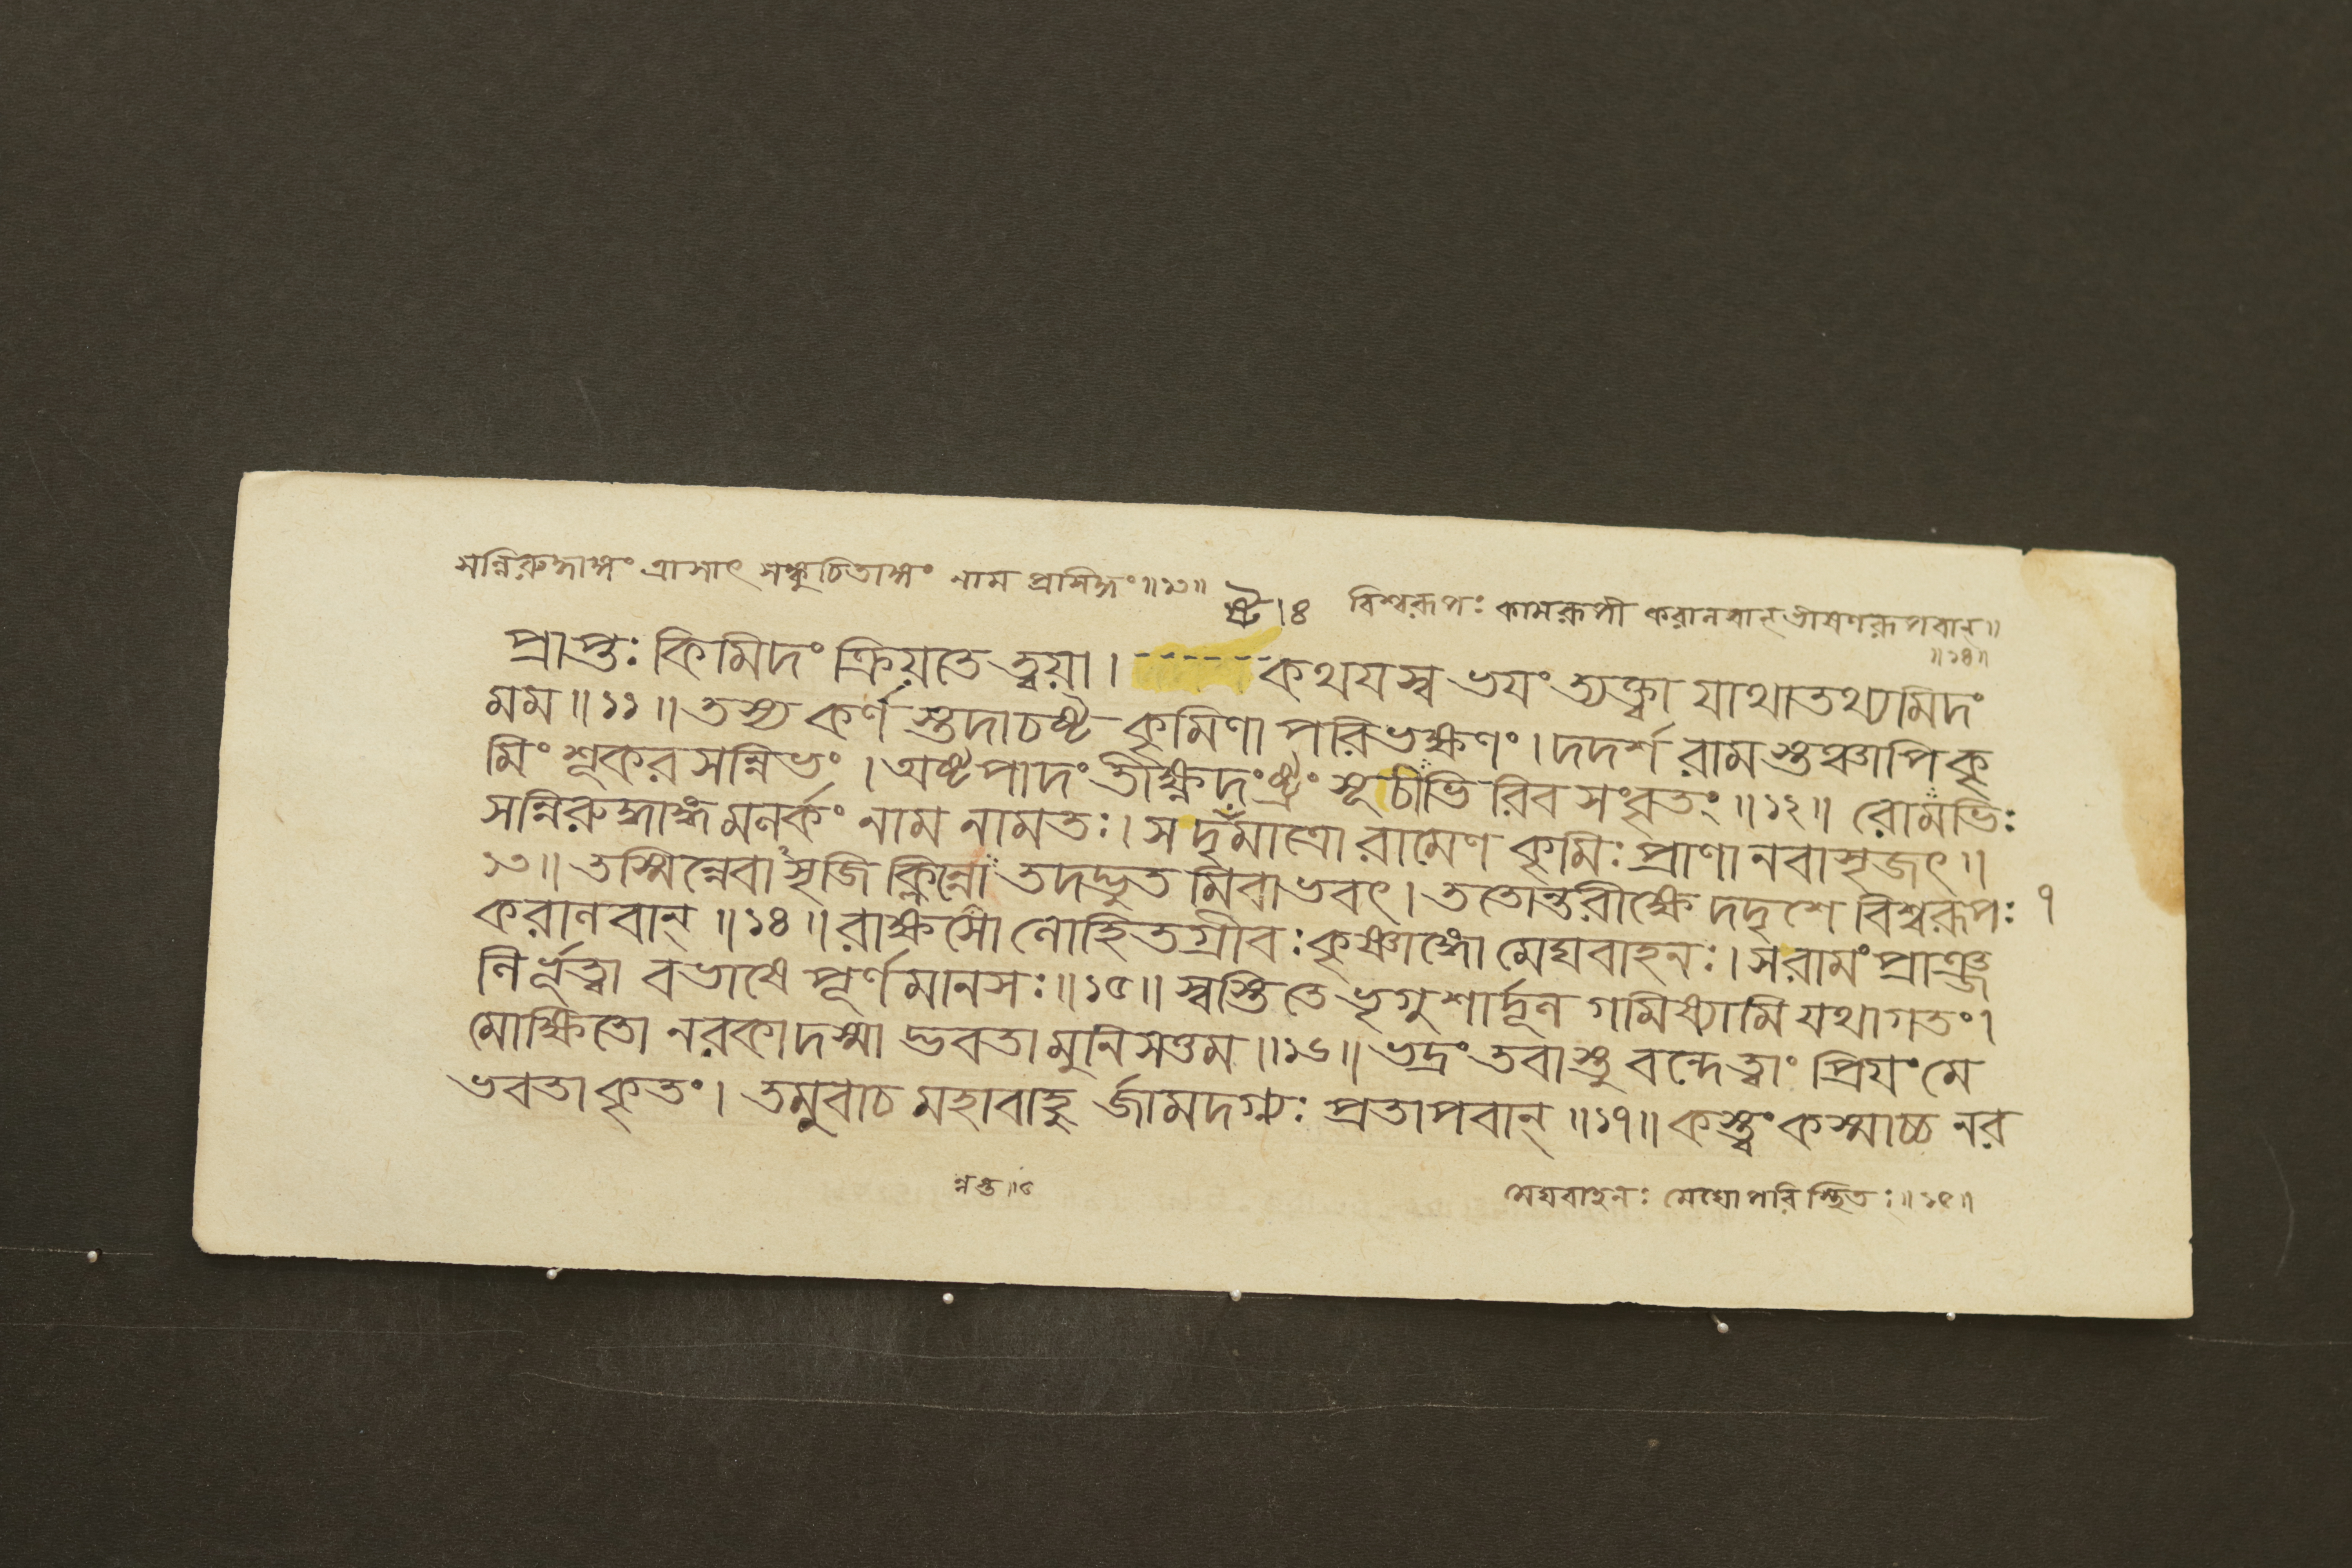 সন্নিরুদ্ধাঙ্গং ত্রাসাৎ সঙ্কুচিতাঙ্গং নাম প্রসিদ্ধং ॥১৩॥
ষ্টে।৪ বিশ্বরূপঃ কামরূপী করালবান্ ভীষণরূপবান্॥
॥১৪॥
প্রাপ্তঃ কিমিদং ক্রিয়তে ত্বয়া। ------কথযস্ব ভযং ত্যক্ত্বা যাথাতথ্যমিদং
মম॥১১॥ তস্য কর্ণ স্তুদাচষ্ট কৃমিণা পরিভক্ষণং। দদর্শ রামস্তুঞ্চাপি কৃ
মিং শূকর সন্নিভং। অষ্টপাদং তীক্ষ্ণদংষ্ট্রং সূচীভি রিব সংবৃতং॥১২॥ রোমভিঃ
সন্নিরুদ্ধাঙ্গমলর্কং নাম নামতঃ। স দৃষ্টমাত্রো রামেণ কৃমিঃ প্রাণানবাসৃজৎ॥
১৩॥ তস্মিন্নেবাসৃজি ক্লিন্নো তদদ্ভুত মিবাভবৎ। ততোন্তরীক্ষে দদৃশে বিশ্বরূপঃ ৭
করালবান্॥১৪॥ রাক্ষসো লোহিতগ্রীবঃ কৃষ্ণাঙ্গো মেঘবাহনঃ। স রামং প্রাঞ্জ
লির্ভূত্বা বভাষে পূর্ণমানসঃ॥১৫॥ স্বস্তি তে ভৃগুশার্দূল গমিষ্যামি যথাগতং।
মোক্ষিতো নরকাদস্মা দ্ভবতা মুনিসত্তম॥১৬॥ ভদ্রং তবাস্তু বন্দে ত্বাং প্রিযং মে
ভবতা কৃতং। তমুবাচ মহাবাহু র্জামদগ্ন্যঃ প্রতাপবান্॥১৭॥ কস্ত্বং কস্মাচ্চ নর
মেঘবাহনঃ মেঘোপরি স্থিতঃ॥১৫॥